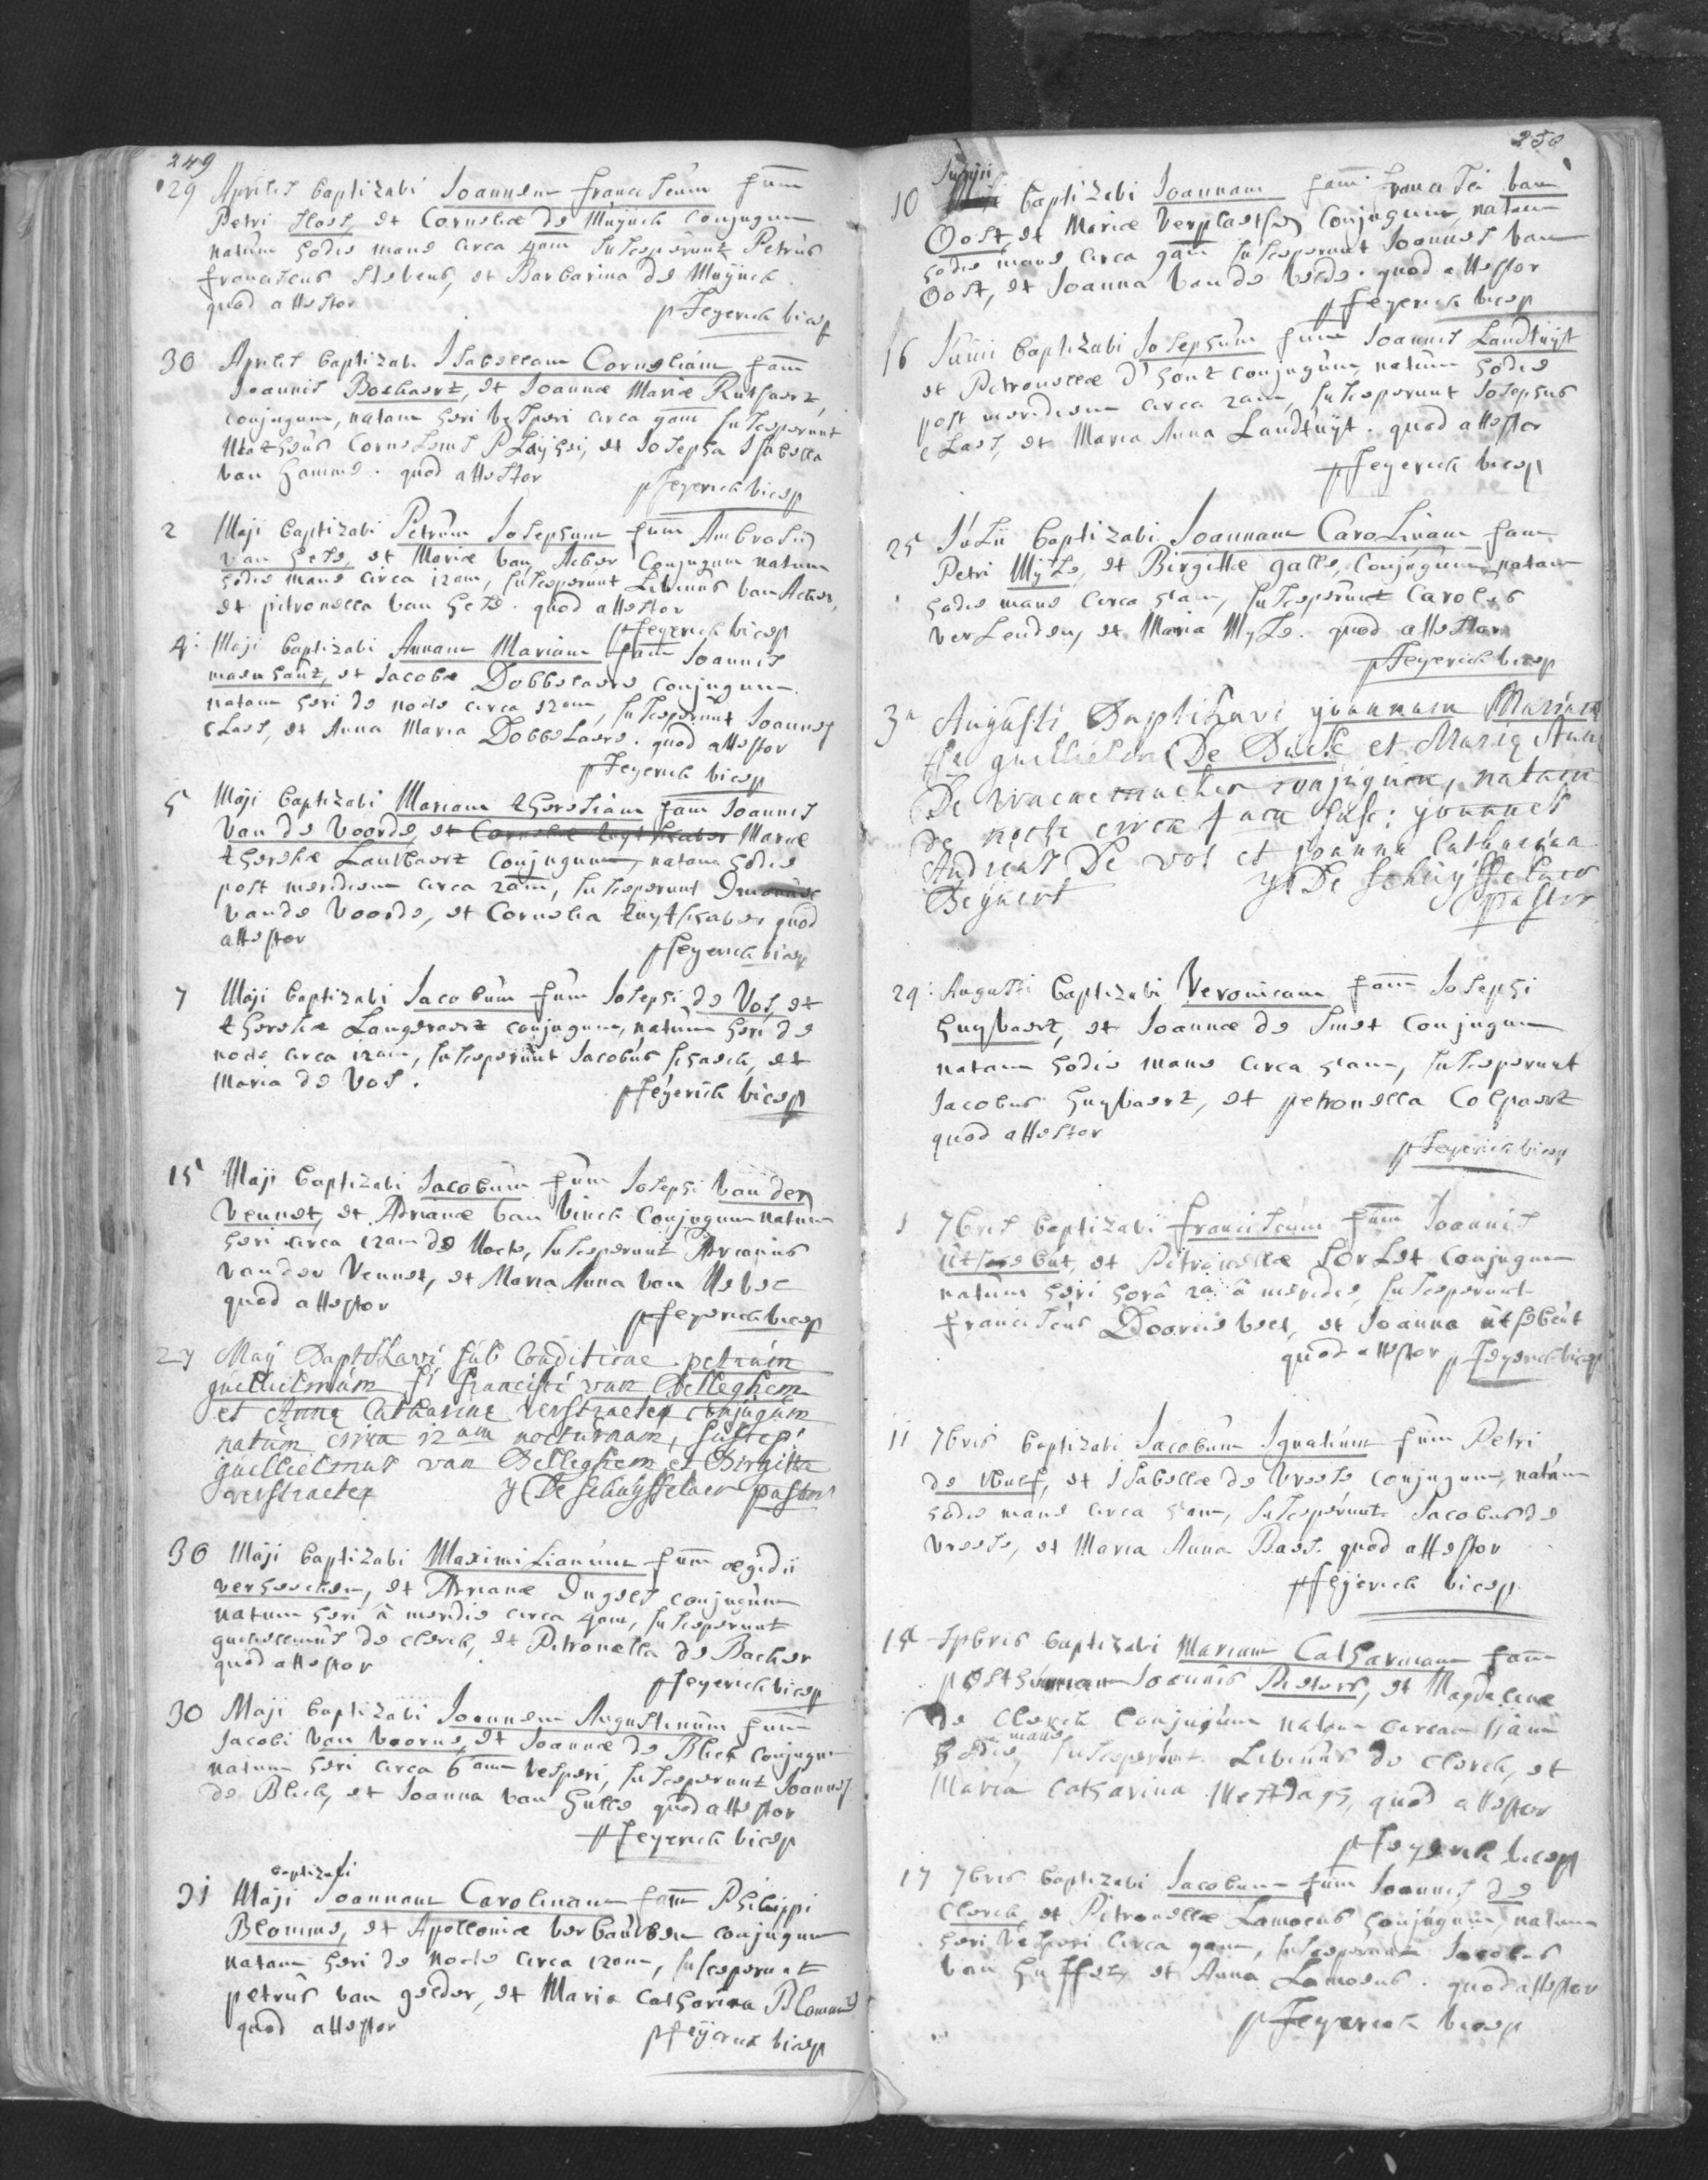 249
29 Aprilis baptizavi Joannem franciscum fum
Petri Maes, et Corneliæ de Muÿnck conjugum
natum hodie mane circa 4am susceperunt Petrus
franciscus Stevens, et Barbarina de Muÿnck
quod attestor
p Feyerick vicep
30 Aprilis baptizavi Isabellam Corneliam fam
Joannis Bockaert, et Joannæ Mariæ Rutsaert,
conjugum, natam heri vesperi circa 9am susceperunt
Mattheus Cornelius et Josepha Isabella
van hamme. quod attestor
p feyerick vicep
2 Maji baptizavi Petrum Josephum fum Ambrosii
van hese, et Mariæ van Acker Conjugum natum
hodie mane circa 12am, susceperunt Livinus van Acker,
et pitronella van hese. quod attestor
p feyerick vicep
4: Maji baptizavi Annam Mariam fam Joannis
maenhaut, et Jacobæ Dobbelaere conjugum
natam heri de nocte circa 12am, susceperunt Joannes
Claes, et Anna Maria Dobbelaere. quod attestor
p Feyerick vicep
5 Maji baptizavi Mariam theresiam fam Joannis
van de Voorde, et Mariæ
theresiæ Lantbaert conjugum, natam hodie
post meridiem circa 2am, susceperunt
vande Voorde, et Cornelia luytschaver quod
attestor
p feyerick vicep
7 Maji baptizavi Jacobum fum Josephi de Vos, et
theresiæ Langeraert conjugum, natum heri de
nocte circa 12am, susceperunt Jacobus schaeck, et
Maria de Vos.
p feÿerick vicep
15 Maji baptizavi Jacobum fum Josephi van der
Vennet, et Adrianæ van Vinck Conjugum natum
heri circa 12am de Nocte, susceperunt Adrianus
vander Vennet, et Maria Anna van
quod attestor
p feyerick vicep
27 Maÿ Baptisavi sub Conditione petrum
guilielmum fs francisci van Belleghem
et Annæ Catharinæ verstraeten conjugum
natum circa 12am nocturnam, suscep:
guilielmus van Belleghem et Birgitta
verstraeten J De Schuyffelaer pastor
30 Maji baptizavi Maximilianum fum ægidii
verheecken, et Adrianæ Ingels conjugum
natum heri à meridie circa 4am, susceperunt
guilielmus de clerck, et Pitronella de Backer
quod attestor
p feyerick vicep
30 Maji baptizavi Joannem Augustinum fum
Jacobi van Voorne, et Joannæ de Bleck conjugum
natum heri circa 6am vesperi, susceperunt Joannes
de Bleck, et Joanna van hulle quod attestor
p feyerick vicep
baptizavi
31 Maji Joannam Carolinam fam Philippi
Blomme, et Apolloniæ verbauwen conjugum
natam heri de nocte circa 12am, susceperunt
petrus van gelder, et Maria Catharina Blomme
quod attestor
p feÿerick vicep
250
Junii
10 baptizavi Joannam fam francisci van
Oost, et Mariæ Verplaetse, Conjugum, natam
hodie mane circa 9am susceperunt Joannes van
Oost, et Joanna van de velde. quod attestor
p feyerick vicep
16 Junii baptizavi Josephum fum Joannis Landtuÿt
et Petronellæ D'hont conjugum, natum hodie
post meridiem circa 2am, susceperunt Josephus
Claes, et Maria Anna Landtuÿt. quod attestor
p feyerick vicep
25 Julii baptizavi Joannam Carolinam fam
Petri Myle, et Birgittæ galle, Conjugum natam
hodie mane circa 5am, susceperunt Carolus
verlenden, et Maria Myle. quod attestor
p Feyerick vicep
3a Augusti Baptisavi joannam Mariam
fs guilielmi De Buck et Mariæ Annæ
De waeaemacker conjugum, natam
de nocte circa 1am susc: joannes
Andreas De vos et joanna Catharina
Beÿaert J: De Schuyffelaer
pastor
29: Augusti baptizavi Veronicam fam Josephi
huybaert, et Joannæ de Smet conjugum
natam hodie mane circa 5am, susceperunt
Jacobus huybaert, et petronella Colpaert
quod attestor
p Feyerick vicep
1 7bris baptizavi franciscum fum Joannis
et Pitronellæ Conjugum
natum heri horâ 2a â meridie, susceperunt
franciscus et Joanna
quod attestor p Feyerick vicep
11 7bris baptizavi Jacobum Ignatium fum Petri
de Wulf, et Isabellæ de Vreese conjugum, natum
hodie mane circa 5am, susceperunt Jacobus de
vreese, et Maria Anna Baes. quod attestor
p feÿerick vicep
15 7pbris baptizavi Mariam Catharinam fam
posthumam Joannis Pieters, et Magdalenæ
de Clerck Conjugum natam circam 11am
mane
hodie, susceperunt Livinus de Clerck, et
Maria Catharina Mestdagh, quod attestor
p feyerick vicep
17 7bris baptizavi Jacobum fum Joannis de
Clerck, et Pitronellæ Lamoens Conjugum, natum
heri vesperi circa 9am, susceperunt Jacobus
van huffel, et Anna Lamoens. quod attestor
p Feyerick vicep